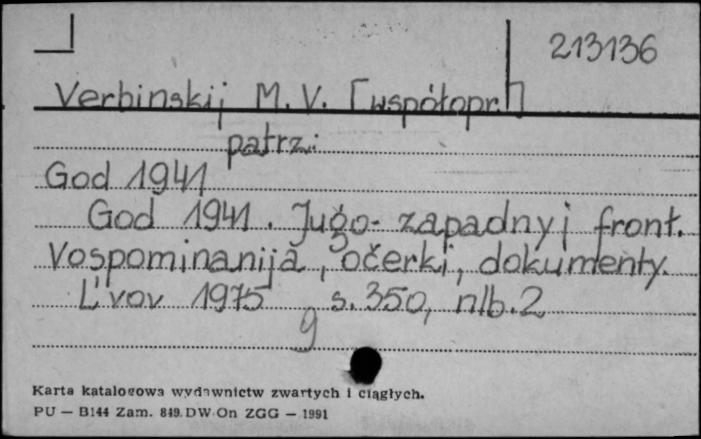 213136
Verbinskij M. V. [współopr.]
patrz:
God 1941
God 1941. Jugo-zapadnyj front.
Vospominanija, očerki, dokumenty.
L'vov 1975 s. 350, nlb. 2
g
Karta katalogowa wydawnictw zwartych i ciągłych.
PU — B144 Zam. 849. DW On ZGG — 1991